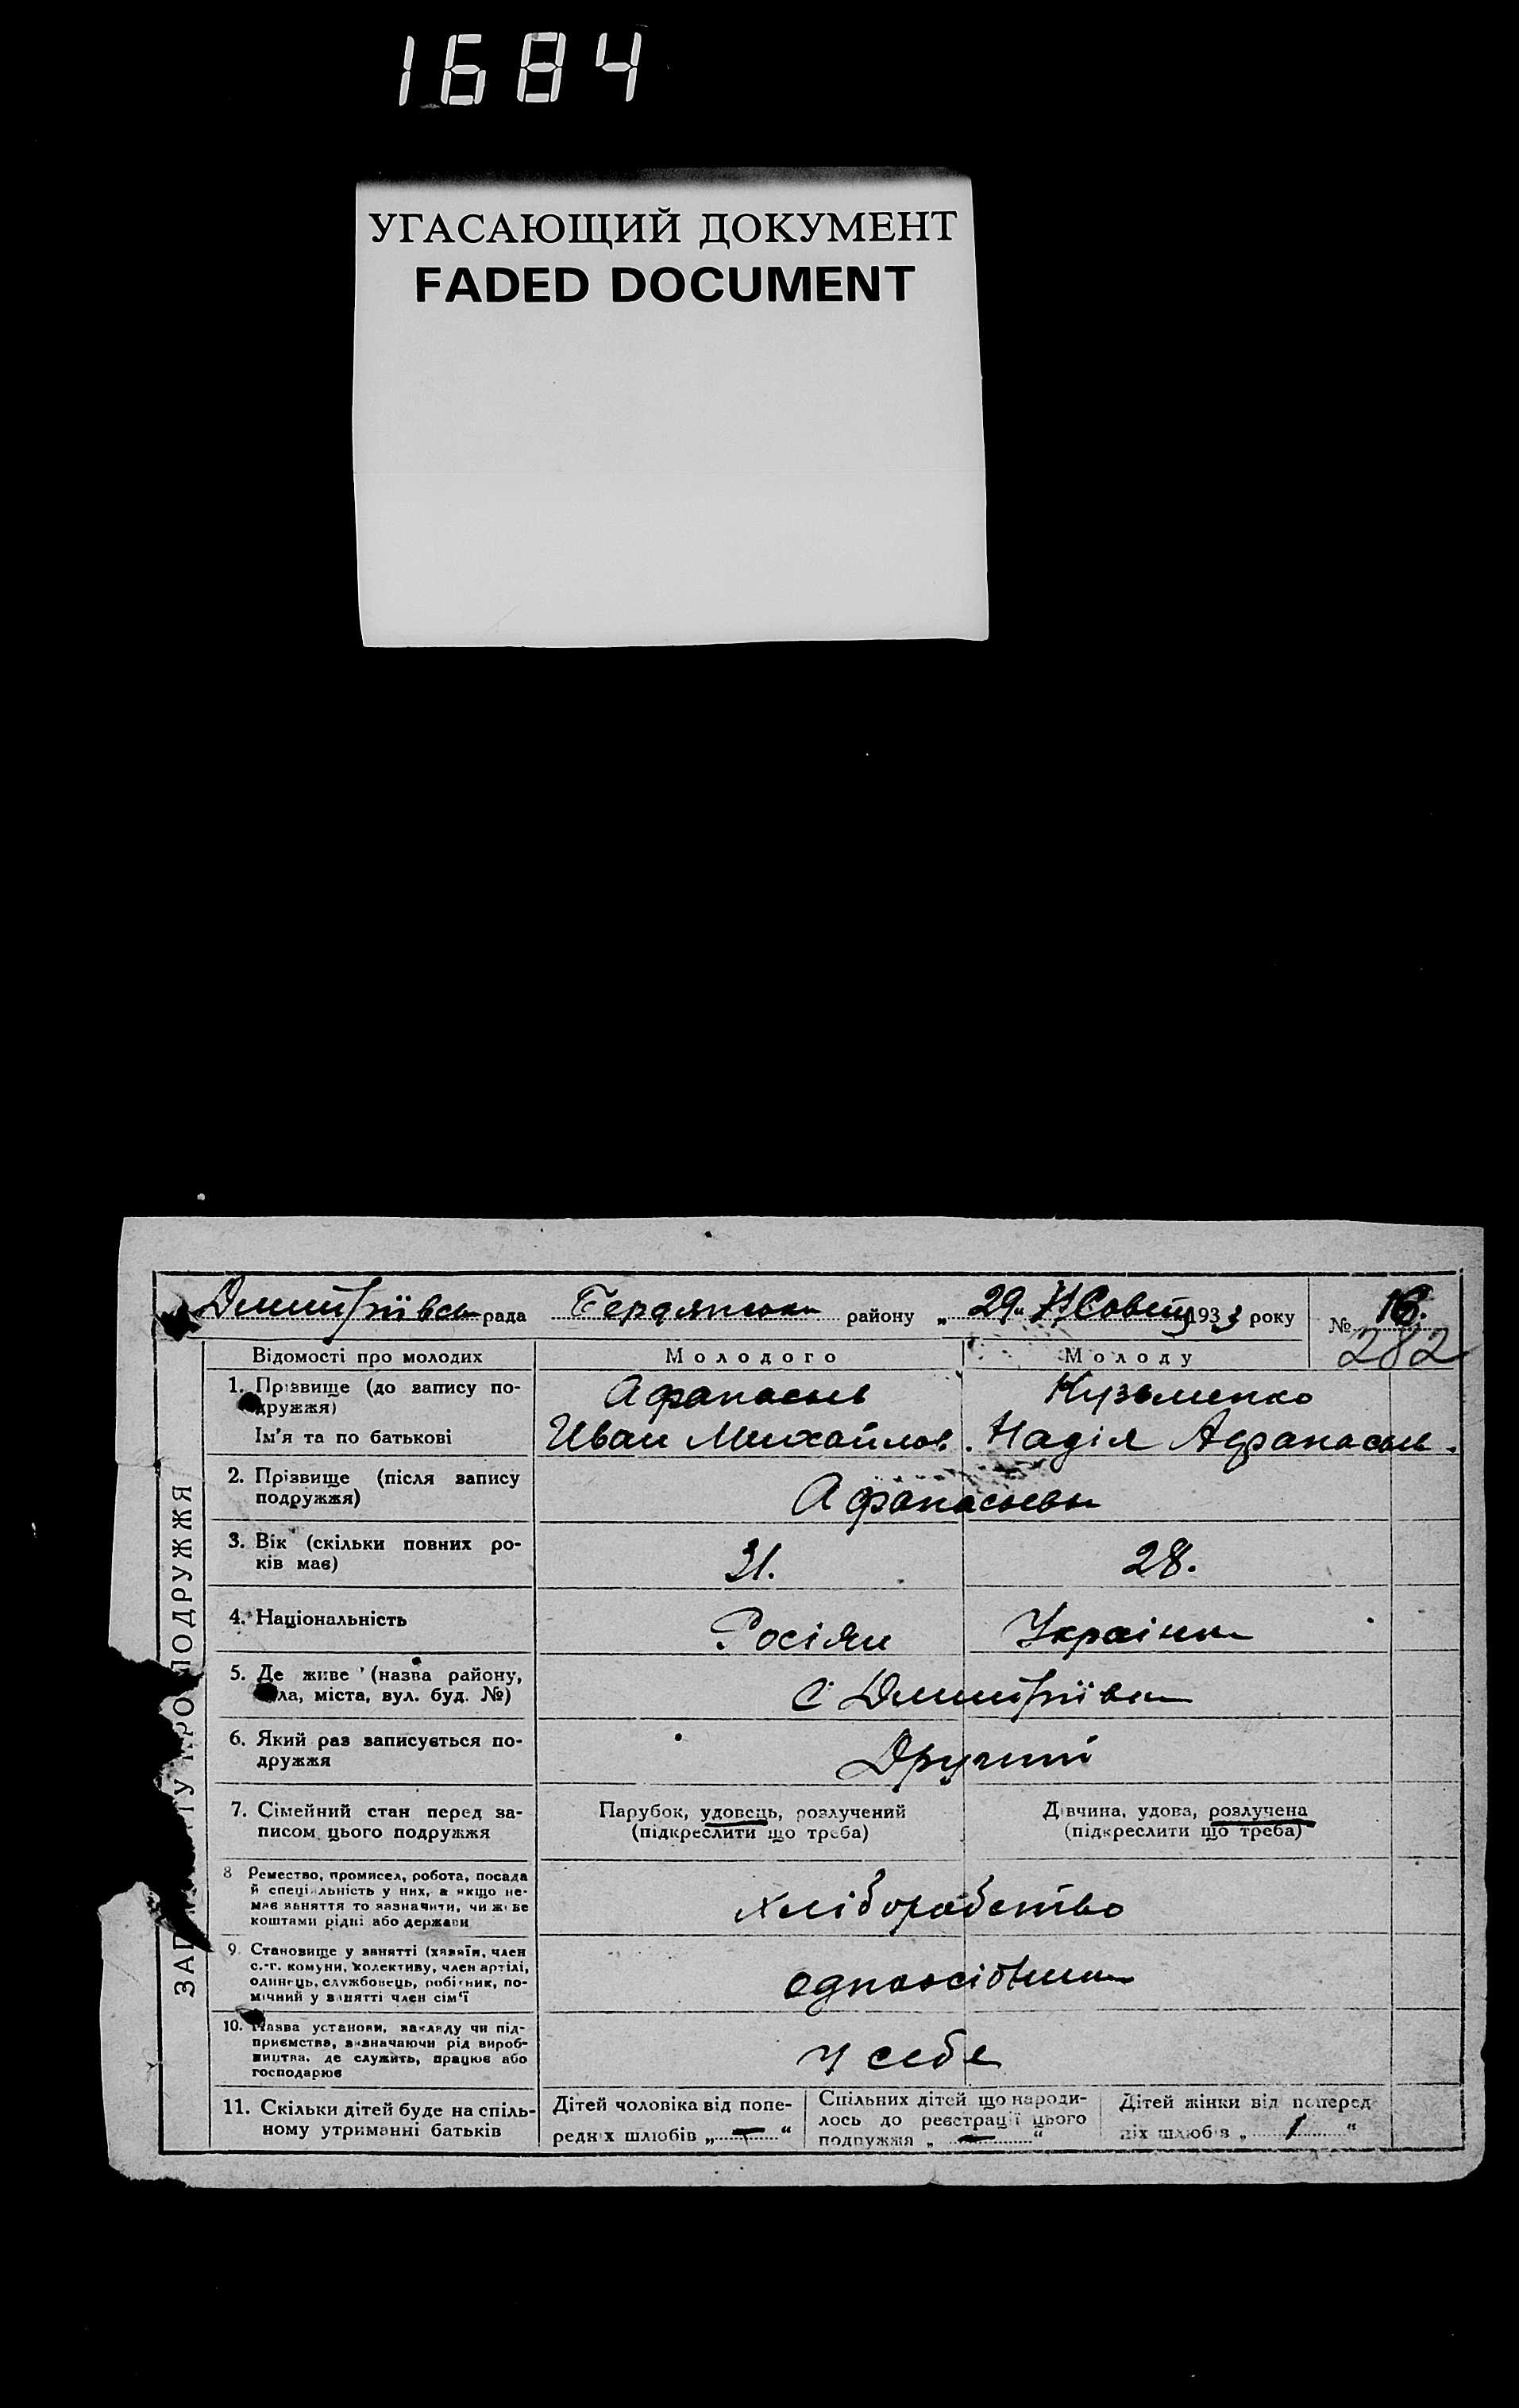 1684
УГАСАЮЩИЙ ДОКУМЕНТ
FADED DOCUMENT
Дмитріівськ рада Бердянськ району „29“ 1933 року № 16.
282
ЗАПИС АКТУ ПРО ПОДРУЖЖЯ
Відомості про молодих Молодого Молоду
1. Прізвище (до запису по-
дружжя) Афанасьев Кузьменко
Ім'я та по батькові Иван Михайлов. Надія Афанасьев.
2. Прізвище (після запису
подружжя) Афанасьевы
3. Вік (скільки повних ро-
ків має) 31. 28.
4. Національність Росіян Українк
5. Де живе (назва району,
села, міста, вул. буд. №) с Дмитріівка
6. Який раз записується по-
дружжя Другий
7. Сімейний стан перед за-
писом цього подружжя
Парубок, удовець, розлучений
(підкреслити що треба)
Дівчина, удова, розлучена
(підкреслити що треба)
8 Ремество, промисел, робота, посада
й спеціяльність у них, а якщо не-
має заняття то зазначити, чи живе
коштами рідні або держави
хліборобство
9. Становище у занятті (хазяїн, член
с.-г. комуни, колективу, член артілі,
одинець, службовець, робітник, по-
мічний у занятті член сім'ї
одноосібники
10. Назва установи, закладу чи під-
приємства, зазначаючи рід вироб-
ництва, де служить, працює або
господарює
у себе
11. Скільки дітей буде на спіль-
ному утриманні батьків
Дітей чоловіка від попе-
редніх шлюбів „ — “
Спільних дітей що народи-
лось до реєстрації цього
подружжя „ — “
Дітей жінки від поперед-
ніх шлюбів „ 1 “